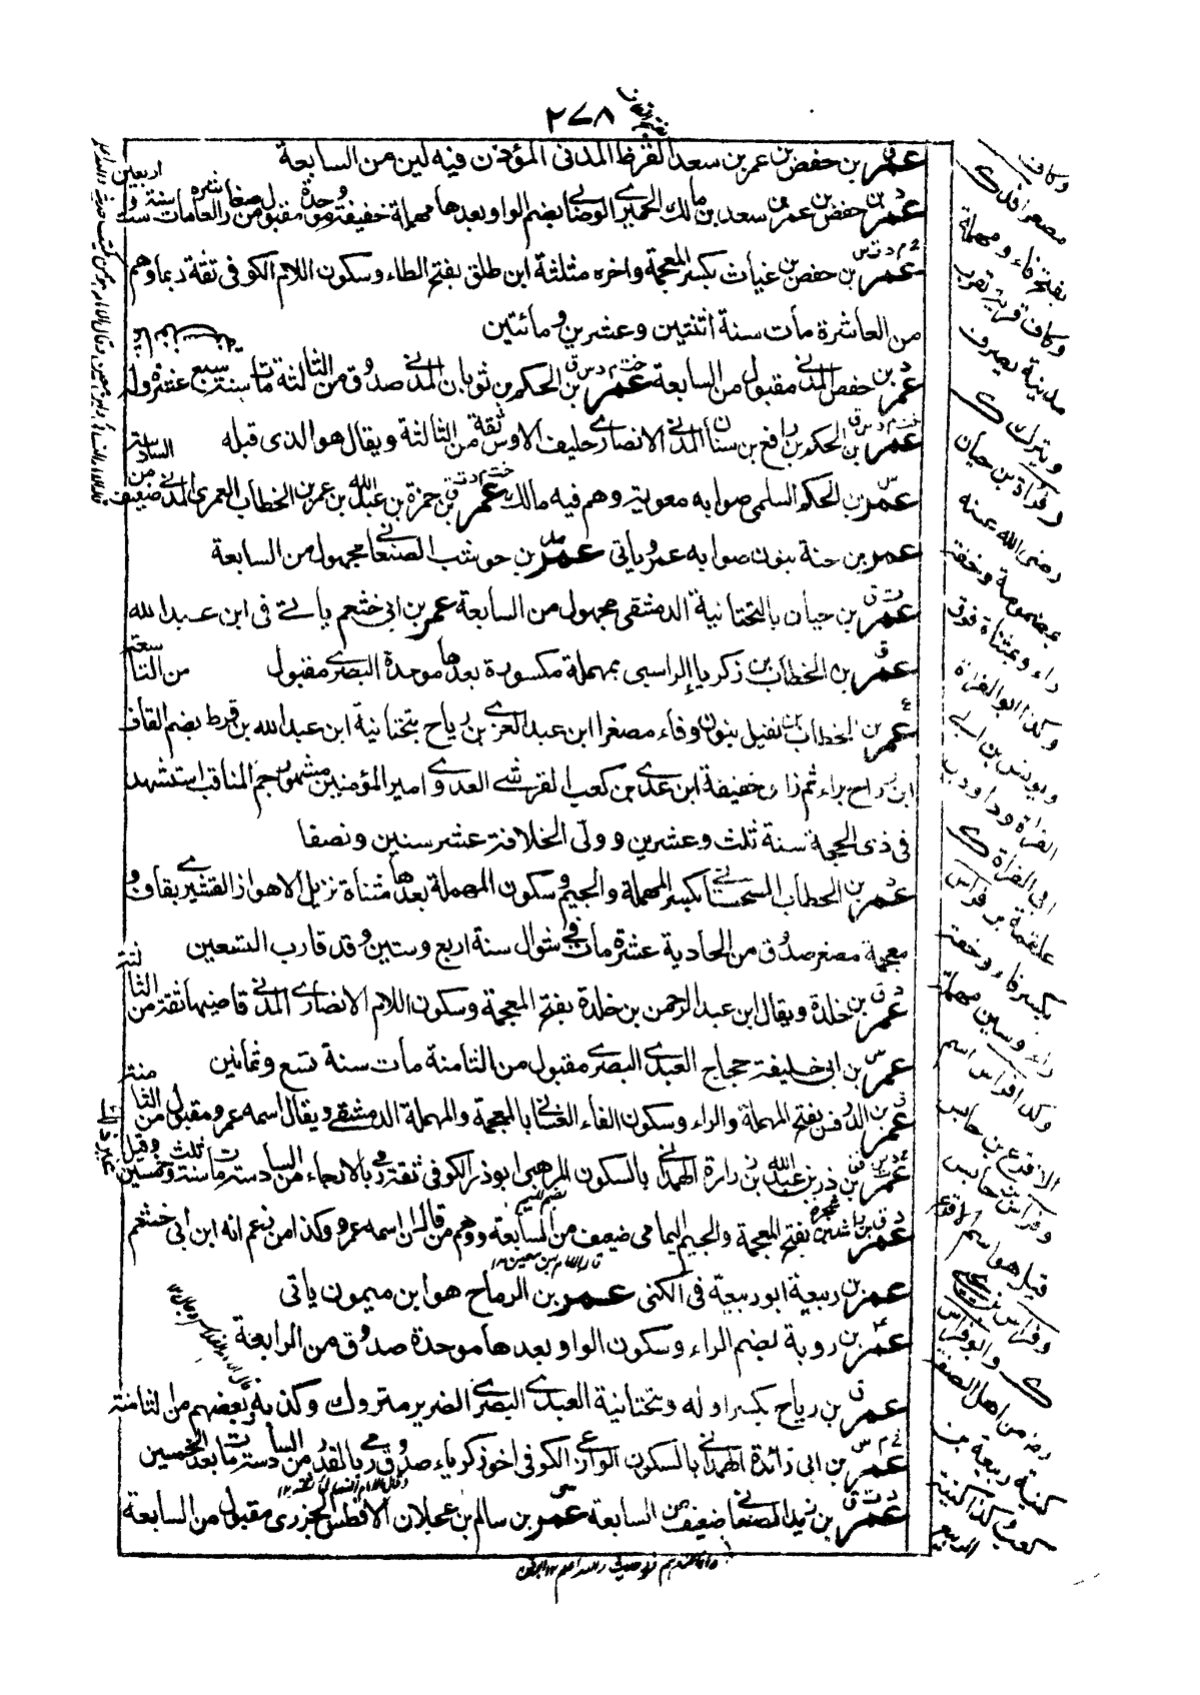 ٢٧٨
عمر بن حفص بن عمر بن سعد القرظ المدنى المؤذن فيه لين من السابعة
عمر بن حفص بن عمر بن سعد بن مالك الحميرى الوصابى بضم الواو بعدها مهملة خفيفة وموحدة مقبول من العاشرة مات سنة ست و اربعين
عمر بن حفص بن غياث بكسر المعجمة واخره مثلثة ابن طلق بفتح الطاء وسكون اللام الكوفى ثقة ربما وهم
من العاشرة مات سنة اثنتين وعشرين ومائتين
عمر بن حفص المدنى مقبول من السابعة عمر بن الحكم بن ثوبان المدنى صدوق من الثالثة مات سنة سبع عشرة وله
عمر بن الحكم بن رافع بن سنان المدنى الانصارى حليف الاوس ثقة من الثالثة ويقال هو الذى قبله
عمر بن الحكم السلمى صوابه معوية وهم فيه مالك عمر بن حمزة بن عبد الله بن عمر بن الخطاب العمرى المدنى ضعيف من السادسة
عمر بن حنة بنون صوابه عمرو ياتى عمر بن حوشب الصنعانى مجهول من السابعة
عمر بن حيان بالتحتانية الدمشقى مجهول من السابعة عمر بن ابى خثعم ياتى فى ابن عبد الله
عمر بن الخطاب بن زكريا الراسبى بمهملة مكسورة بعدها موحدة البصرى مقبول من التاسعة
عمر بن الخطاب بن نفيل بنون وفاء مصغرا ابن عبد العزى بن رياح بتحتانية ابن عبد الله بن قرط بضم القاف
ابن رزاح براء ثم زاى خفيفة ابن عدى بن كعب القرشى العدوى امير المؤمنين مشهور جم المناقب استشهد
فى ذى الحجة سنة ثلث وعشرين وولى الخلافة عشر سنين ونصفا
عمر بن الخطاب السجستانى بكسر المهملة والجيم وسكون المهملة بعدها مثناة نزيل الاهواز القشيرى بقاف و
معجمة مصغر صدوق من الحادية عشرة مات فى شوال سنة اربع وستين وقد قارب التسعين
عمر بن خلدة ويقال ابن عبد الرحمن بن خلدة بفتح المعجمة وسكون اللام الانصارى المدنى قاضيها ثقة من الثالثة
عمر بن ابى خليفة حجاج العبدى البصرى مقبول من الثامنة مات سنة تسع وثمانين
عمر بن الدرفس بفتح المهملة والراء وسكون الفاء الغسانى بالمعجمة والمهملة الدمشقى ويقال اسمه عمرو مقبول من الثامنة
عمر بن ذر بن عبد الله بن زرارة الهمدانى بالسكون المرهبى ابو ذر الكوفى ثقة رمى بالارجاء من السادسة مات سنة ثلث وخمسين وقيل غير ذلك
عمر بن راشد بن شجرة بفتح المعجمة والجيم اليمامى ضعيف من السابعة ووهم من قال ان اسمه عمرو وكذا من زعم انه ابن ابى خثعم
عمر بن ربيعة ابو ربيعة فى الكنى عمر بن الرماح هو ابن ميمون ياتى
عمر بن روبة بضم الراء وسكون الواو بعدها موحدة صدوق من الرابعة
عمر بن رياح بكسر اوله وتحتانية العبدى البصرى الضرير متروك وكذبه بعضهم من الثامنة
عمر بن ابى زائدة الهمدانى بالسكون الوادعى الكوفى اخو زكرياء صدوق رمى بالقدر من السادسة مات بعد الخمسين
عمر بن زيد الصنعانى ضعيف من السابعة عمر بن سالم بن عجلان الافطس الجزرى مقبول من السابعة
وكاف
مصغر افدك
بفتح فاء ومهملة
وكاف قرية تقرب
مدينة يصرف
ويترك ك
فراة بن حيان
رضى الله عنه
بمضمومة وخفة
راء وبمثناة فوق
وكذا ابو الفراة
ويونس بن ابى
الفراة وداود بن
ابى الفراة ك
علقمة بن فراس
بكسر فاء وخفة
راء وسين مهملة
وكذا فراس اسم
الاقرع بن حابس
وفراس بن حابس
قيل هو اسم الاقرع
وفراس
ك وابو فراس
رض من اهل الصفة
كنية ربيعة بن
كعب وكذا كنية
الربيع